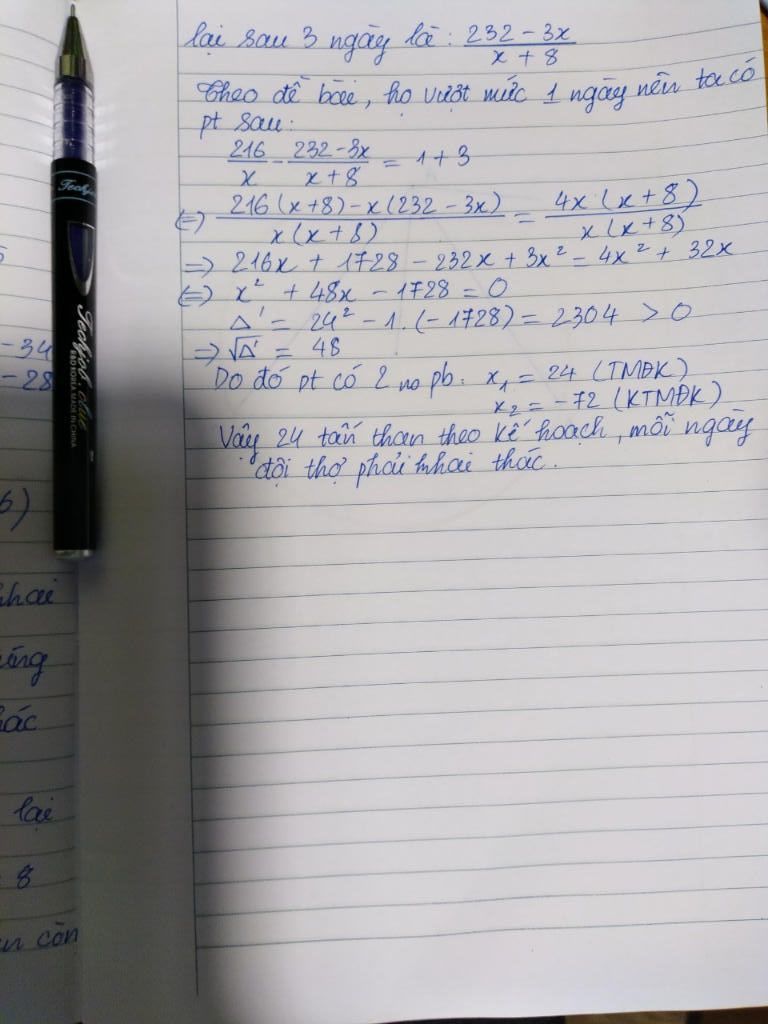 lại sau 3 ngày là: (232 - 3x)/(x + 8)
Theo đề bài, họ vượt mức 1 ngày nên ta có
pt sau:
216/x - (232 - 3x)/(x + 8) = 1 + 3
⇔ (216(x+8) - x(232 - 3x))/(x(x+8)) = (4x(x+8))/(x(x+8))
⇒ 216x + 1728 - 232x + 3x² = 4x² + 32x
⇔ x² + 48x - 1728 = 0
Δ' = 24² - 1.(-1728) = 2304 > 0
⇒ √Δ' = 48
Do đó pt có 2 no pb: x₁ = 24 (TMĐK)
x₂ = -72 (KTMĐK)
Vậy 24 tấn than theo kế hoạch, mỗi ngày
đội thợ phải khai thác.
-34
-28
6)
hai
lại
8
còn
Techjob
MADE IN CHINA